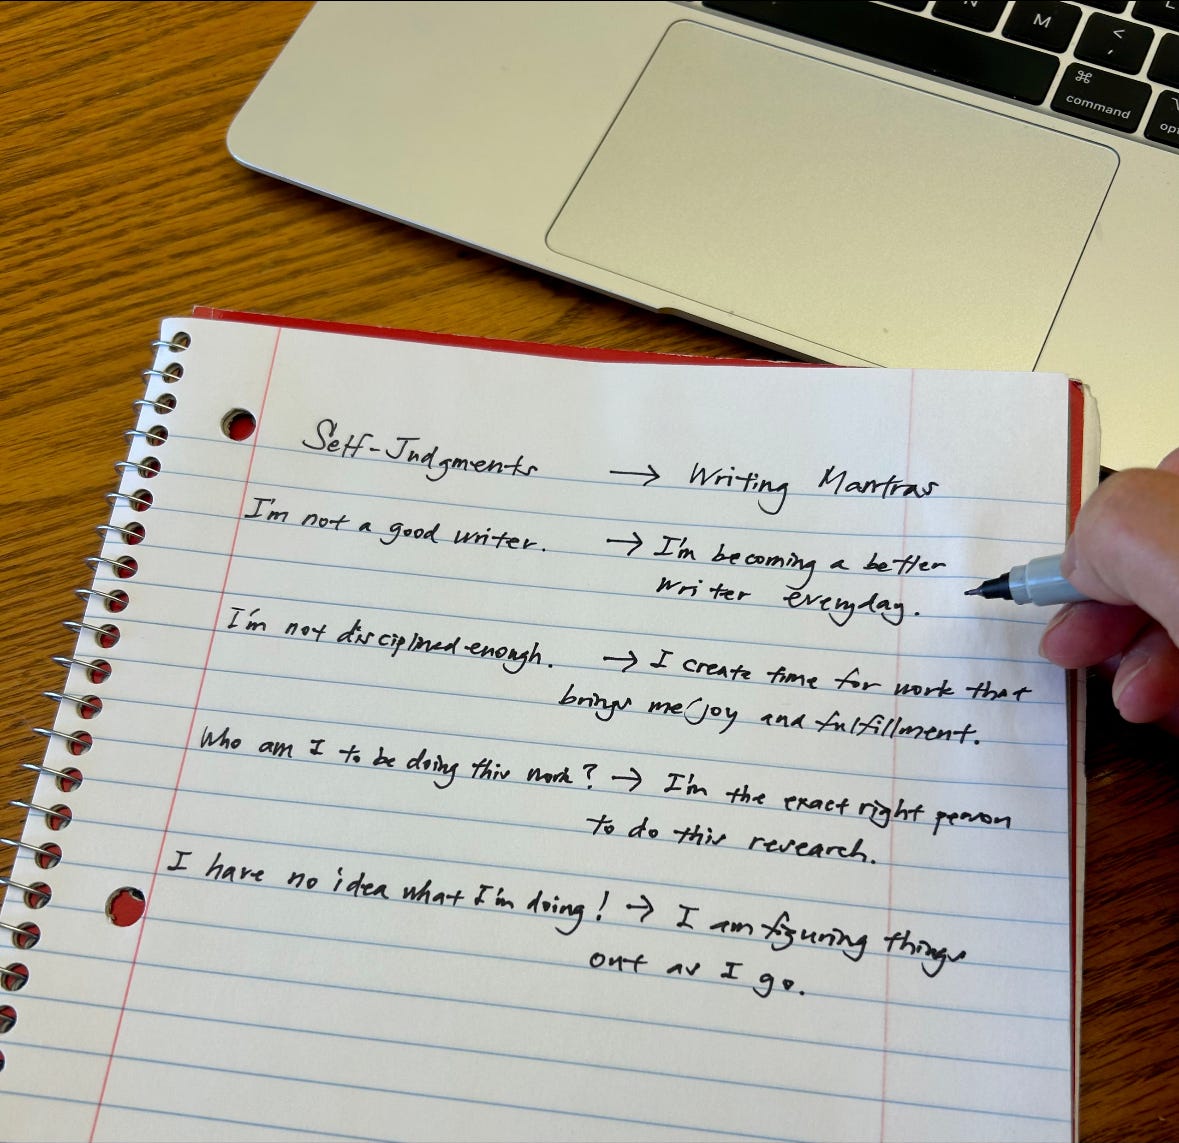 N M < ,
⌘
command
opt
Self-Judgments → Writing Mantras
I'm not a good writer. → I'm becoming a better
writer everyday.
I'm not disciplined enough. → I create time for work that
brings me joy and fulfillment.
Who am I to be doing this work? → I'm the exact right person
to do this research.
I have no idea what I'm doing! → I am figuring things
out as I go.